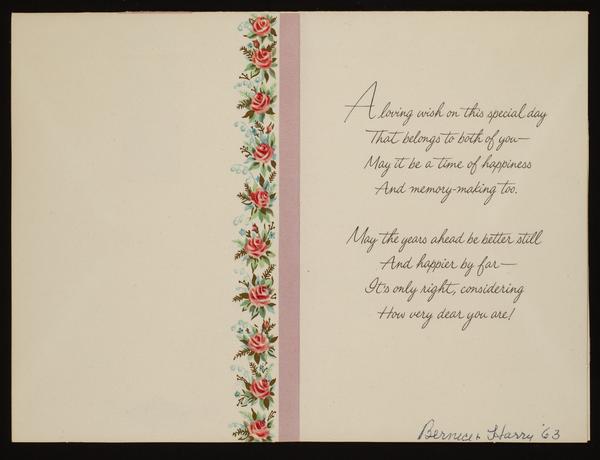 A loving wish on this special day
That belongs to both of you—
May it be a time of happiness
And memory-making too.
May the years ahead be better still
And happier by far—
It's only right, considering
How very dear you are!
Bernice + Harry '63